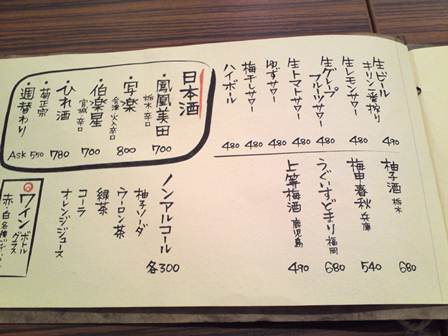 生ビール
キリン一番搾り 490
生レモンサワー 480
生グレープ
フルーツサワー 480
生トマトサワー 480
ゆずサワー 480
梅干しサワー 480
ハイボール 480
日本酒
・鳳凰美田 栃木 辛口 700
・写楽 会津・火入辛口 800
・伯楽星 宮城 辛口 700
・ひれ酒 780
・菊正宗 550
・週替わり Ask
柚子酒 栃木 680
梅申春秋 兵庫 540
うぐいすとまり 福岡 680
上等梅酒 鹿児島 490
ノンアルコール 各300
柚子ソーダ
ウーロン茶
緑茶
コーラ
オレンジジュース
ワイン
ボトル
グラス
赤・白各種